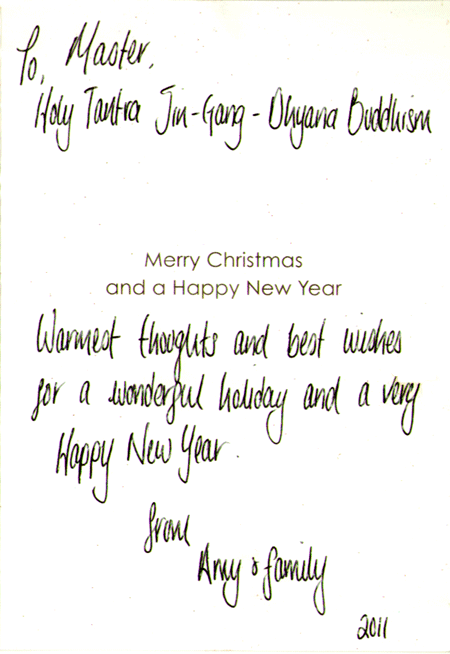 To, Master,
Holy Tantra Jin-Gang-Dhyana Buddhism
Merry Christmas
and a Happy New Year
Warmest thoughts and best wishes
for a wonderful holiday and a very
Happy New Year.
from
Amy & family
2011